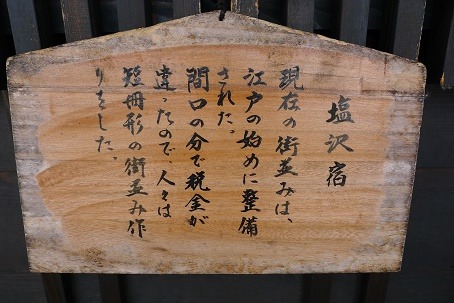 塩沢宿
現在の街並みは、
江戸の始めに整備
された。
間口の分で税金が
違ったので、人々は
短冊形の街並み作
りをした。